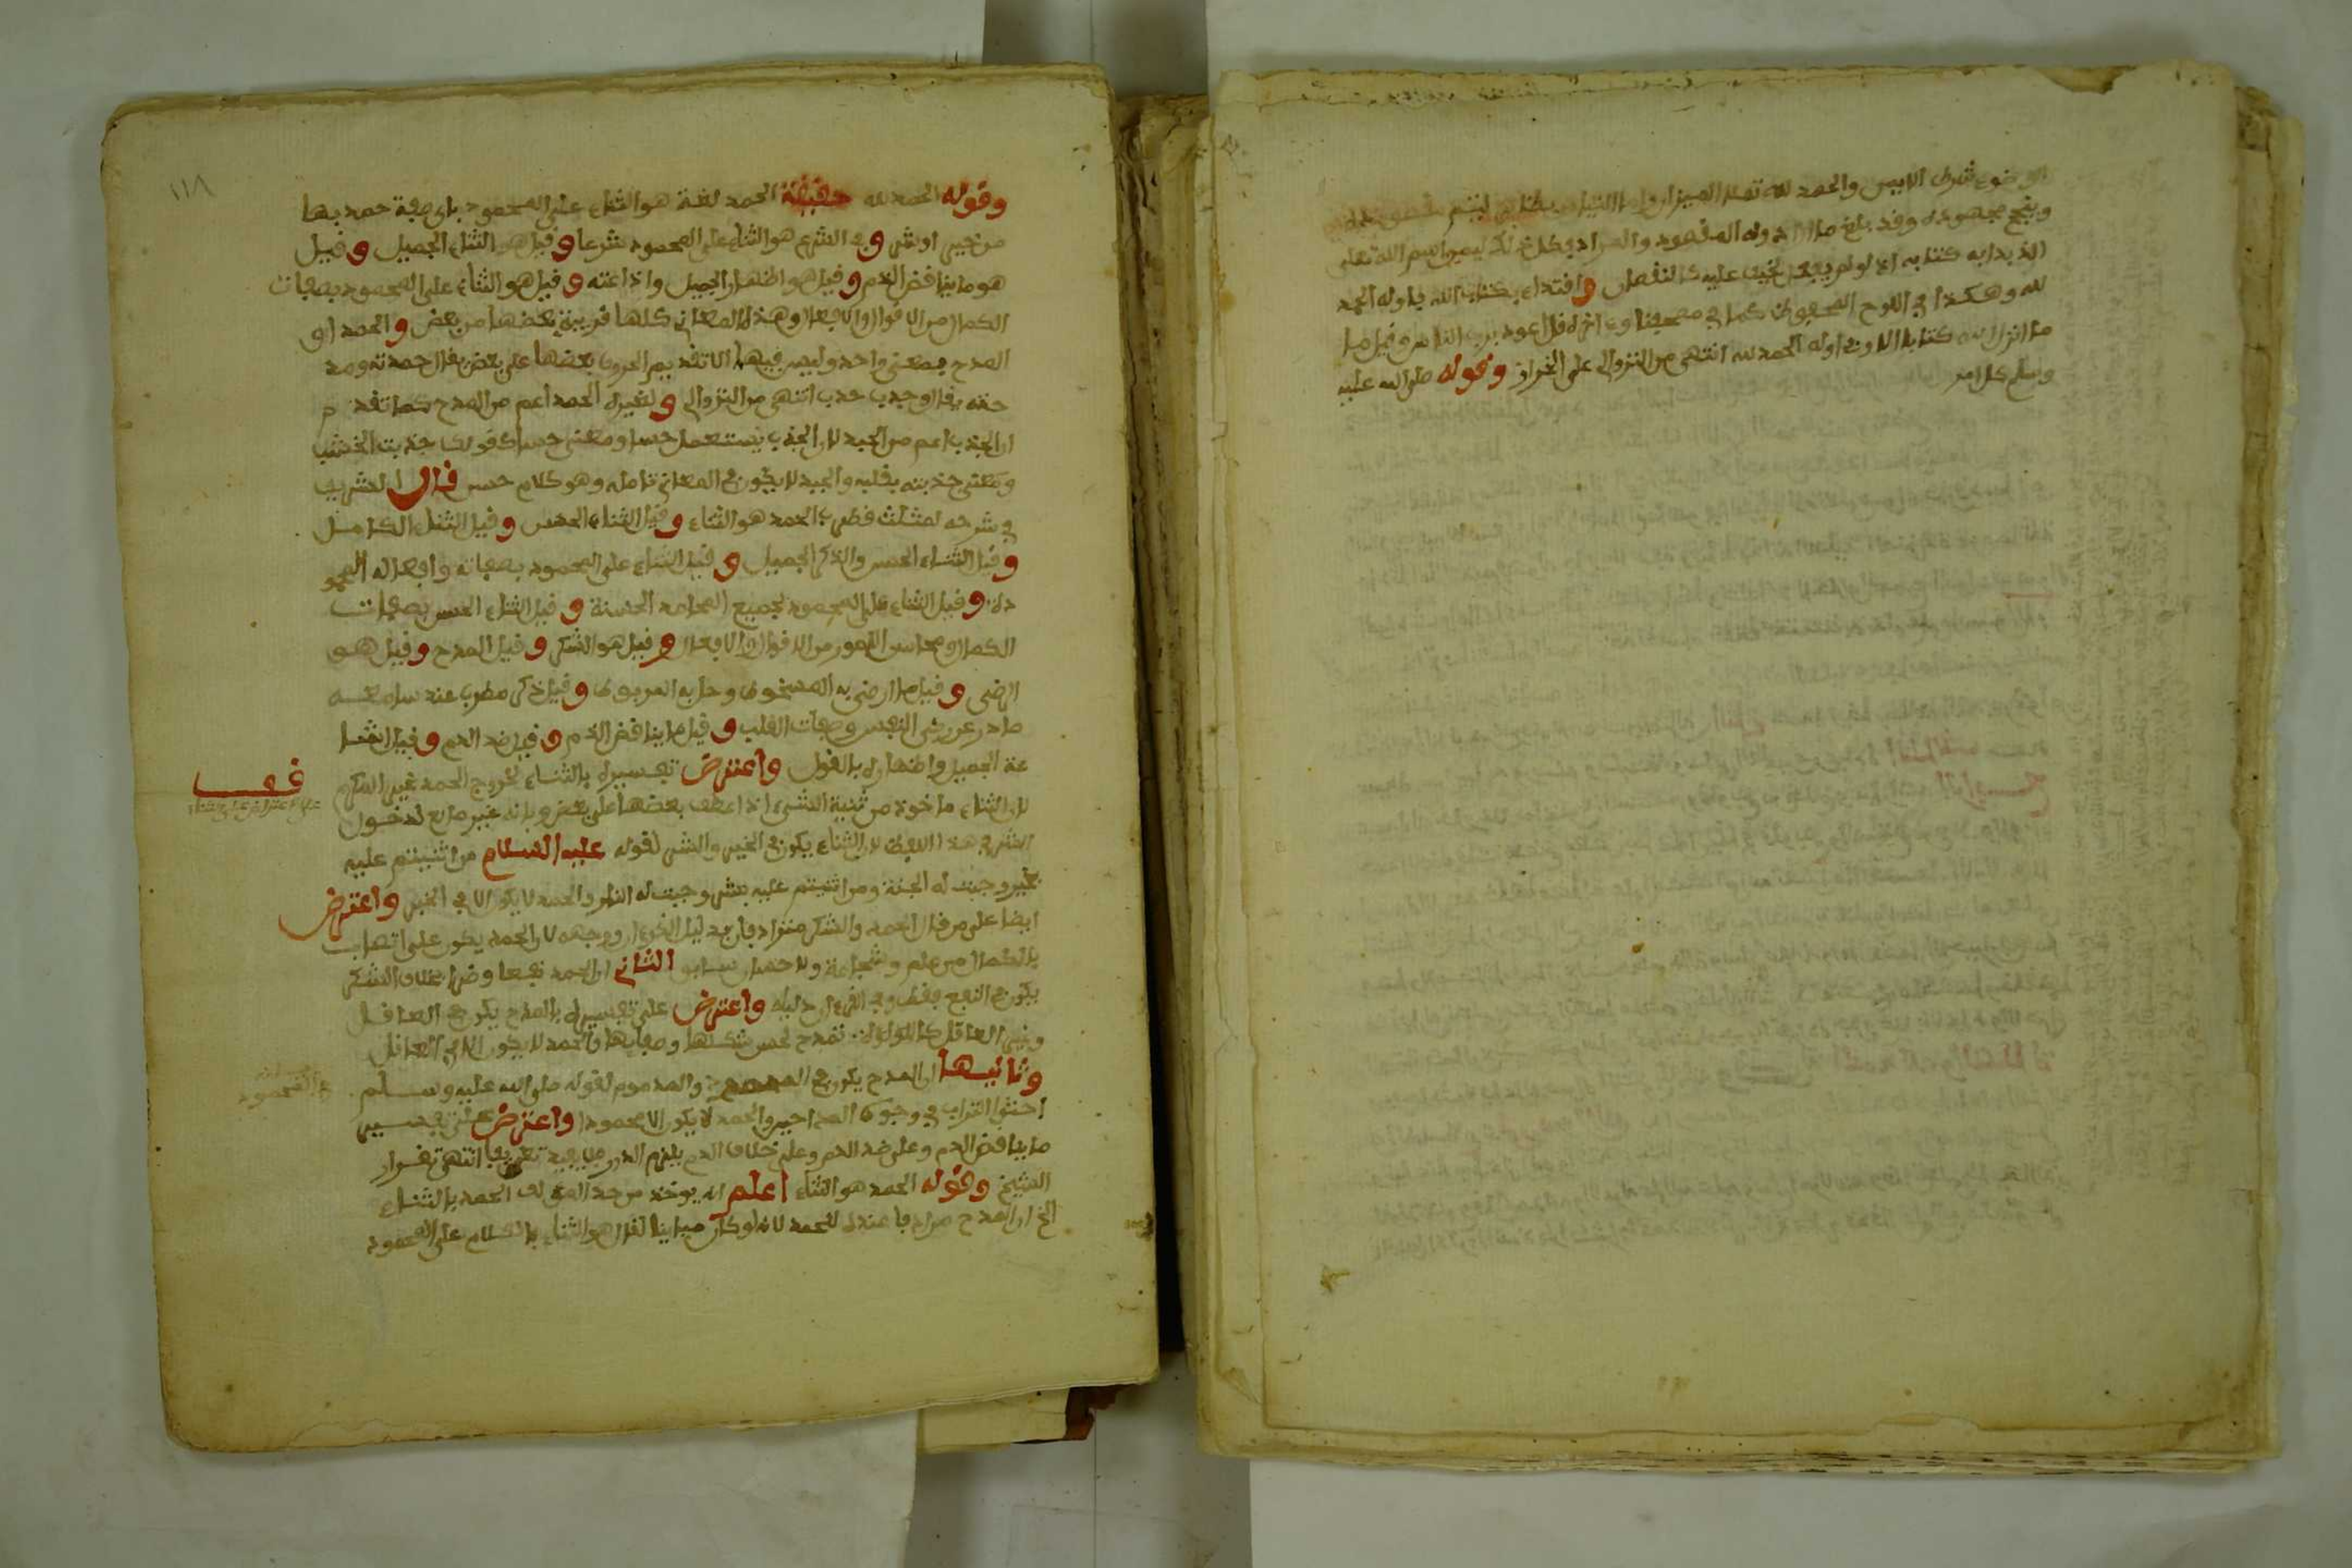 الوضوء شطر الايمن والحمد لله تملا الميزان
وينجح مجهوده وقد بلغ ما اراد وله المقصود والمراد وكل ذلك ليمن اسم الله تعلى
الذ بدا به كتابه اذ لو لم يبدا لخيف عليه النقصان واقتداء بكتاب الله فاوله الحمد
لله وهكذا في اللوح المحفوظ كما في مصحفنا وءاخره قل اعوذ برب الناس وقيل ما
ما انزل الله كتابا الا وفي اوله الحمد لله انتهى من النزوالي على الخراز وقوله صلى الله عليه
وسلم كل امر
١١٨
وقوله الحمد لله حقيقة الحمد لغة هو الثناء على المحمود باي صفة حمد بها
من خير او شر وفي الشرع هو الثناء على المحمود شرعا وقيل هو الثناء الجميل وقيل
هو ما يناقض الذم وقيل هو اظهار الجميل واذاعته وقيل هو الثناء على المحمود بصفات
الكمال من الاقوال والافعال وهذه المعاني كلها قريبة بعضها من بعض والحمد او
المدح بمعنى واحد وليس فيهما الا تقديم الحروف بعضها على بعض يقال حمدته ومد
حته يقال وجذب جبذ انتهى من النزوالي ولغيره الحمد اعم من المدح كما تقدم
ان الجذب اعم من الجبذ لان الجذب يستعمل حسا ومعنى حسا كقولك جذبت الخشب
ومعنى جذبته بقلبه والجبذ لا يكون في المعاني تامله وهو كلام حسن قال الشريف
في شرحه لمثلث قطرب الحمد هو الثناء وقيل الثناء الحسن وقيل الثناء الكامل
وقيل الثناء الحسن والذكر الجميل وقيل الثناء على المحمود بصفاته وافعاله المحمو
دة وقيل الثناء على المحمود بجميع المحامد الحسنة وقيل الثناء الحسن بصفات
الكمال ومحاسن الامور من الاقوال والافعال وقيل هو الشكر وقيل المدح وقيل هو
الرضى وقيل ما ارضي به المسخوط وقيل ذكر مطرب عند سامعه
صادر عن رضى النفس وصفات القلب وقيل ما يناقض الذم وقيل ضد الذم وقيل اشا
عة الجميل واظهاره بالقول واعترض تفسيره بالثناء لخروج الحمد غير المكرر
لان الثناء ماخوذ من تثنية الشيء اذا عطف بعضها على بعض وبانه غير مانع لدخول
الشر في هذا اللفظ لان الثناء يكون في الخير والشر لقوله عليه السلام من اثنيتم عليه
بخير وجبت له الجنة ومن اثنيتم عليه بشر وجبت له النار والحمد لا يكون الا في الخير واعترض
ايضا على من قال الحمد والشكر مترادفان
بالكمال من علم وشجاعة ولا حسان سابق الثاني ان الحمد نفعا وضرا بخلاف الشكر
يكون في النفع فقط واعترض على تفسيره بالمدح يكون في العاقل
وغير العاقل كاللؤلؤة تمدح لحسن شكلها وصفايها والحمد لا يكون الا في العاقل
وثانيها ان المدح يكون في الممدوح والمذموم لقوله صلى الله عليه وسلم
احثوا التراب في وجوه المداحين والحمد لا يكون الا محمودا واعترض على تفسير
ما يناقض الذم وعلى ضد الذم وعلى خلاف الذم يلزم الدور انتهى
الشيخ وقوله الحمد هو الثناء اعلم انه يوخذ من حد المولف الحمد بالثناء
الخ ان المدح مرادفا عنده للحمد لانه لو كان مباينا لقال هو الثناء بالكلام على المحمود
قف
على الاعتراض على الثناء
في المحمود